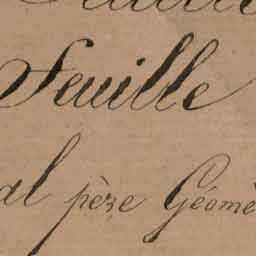 Feuille
al père Géomè